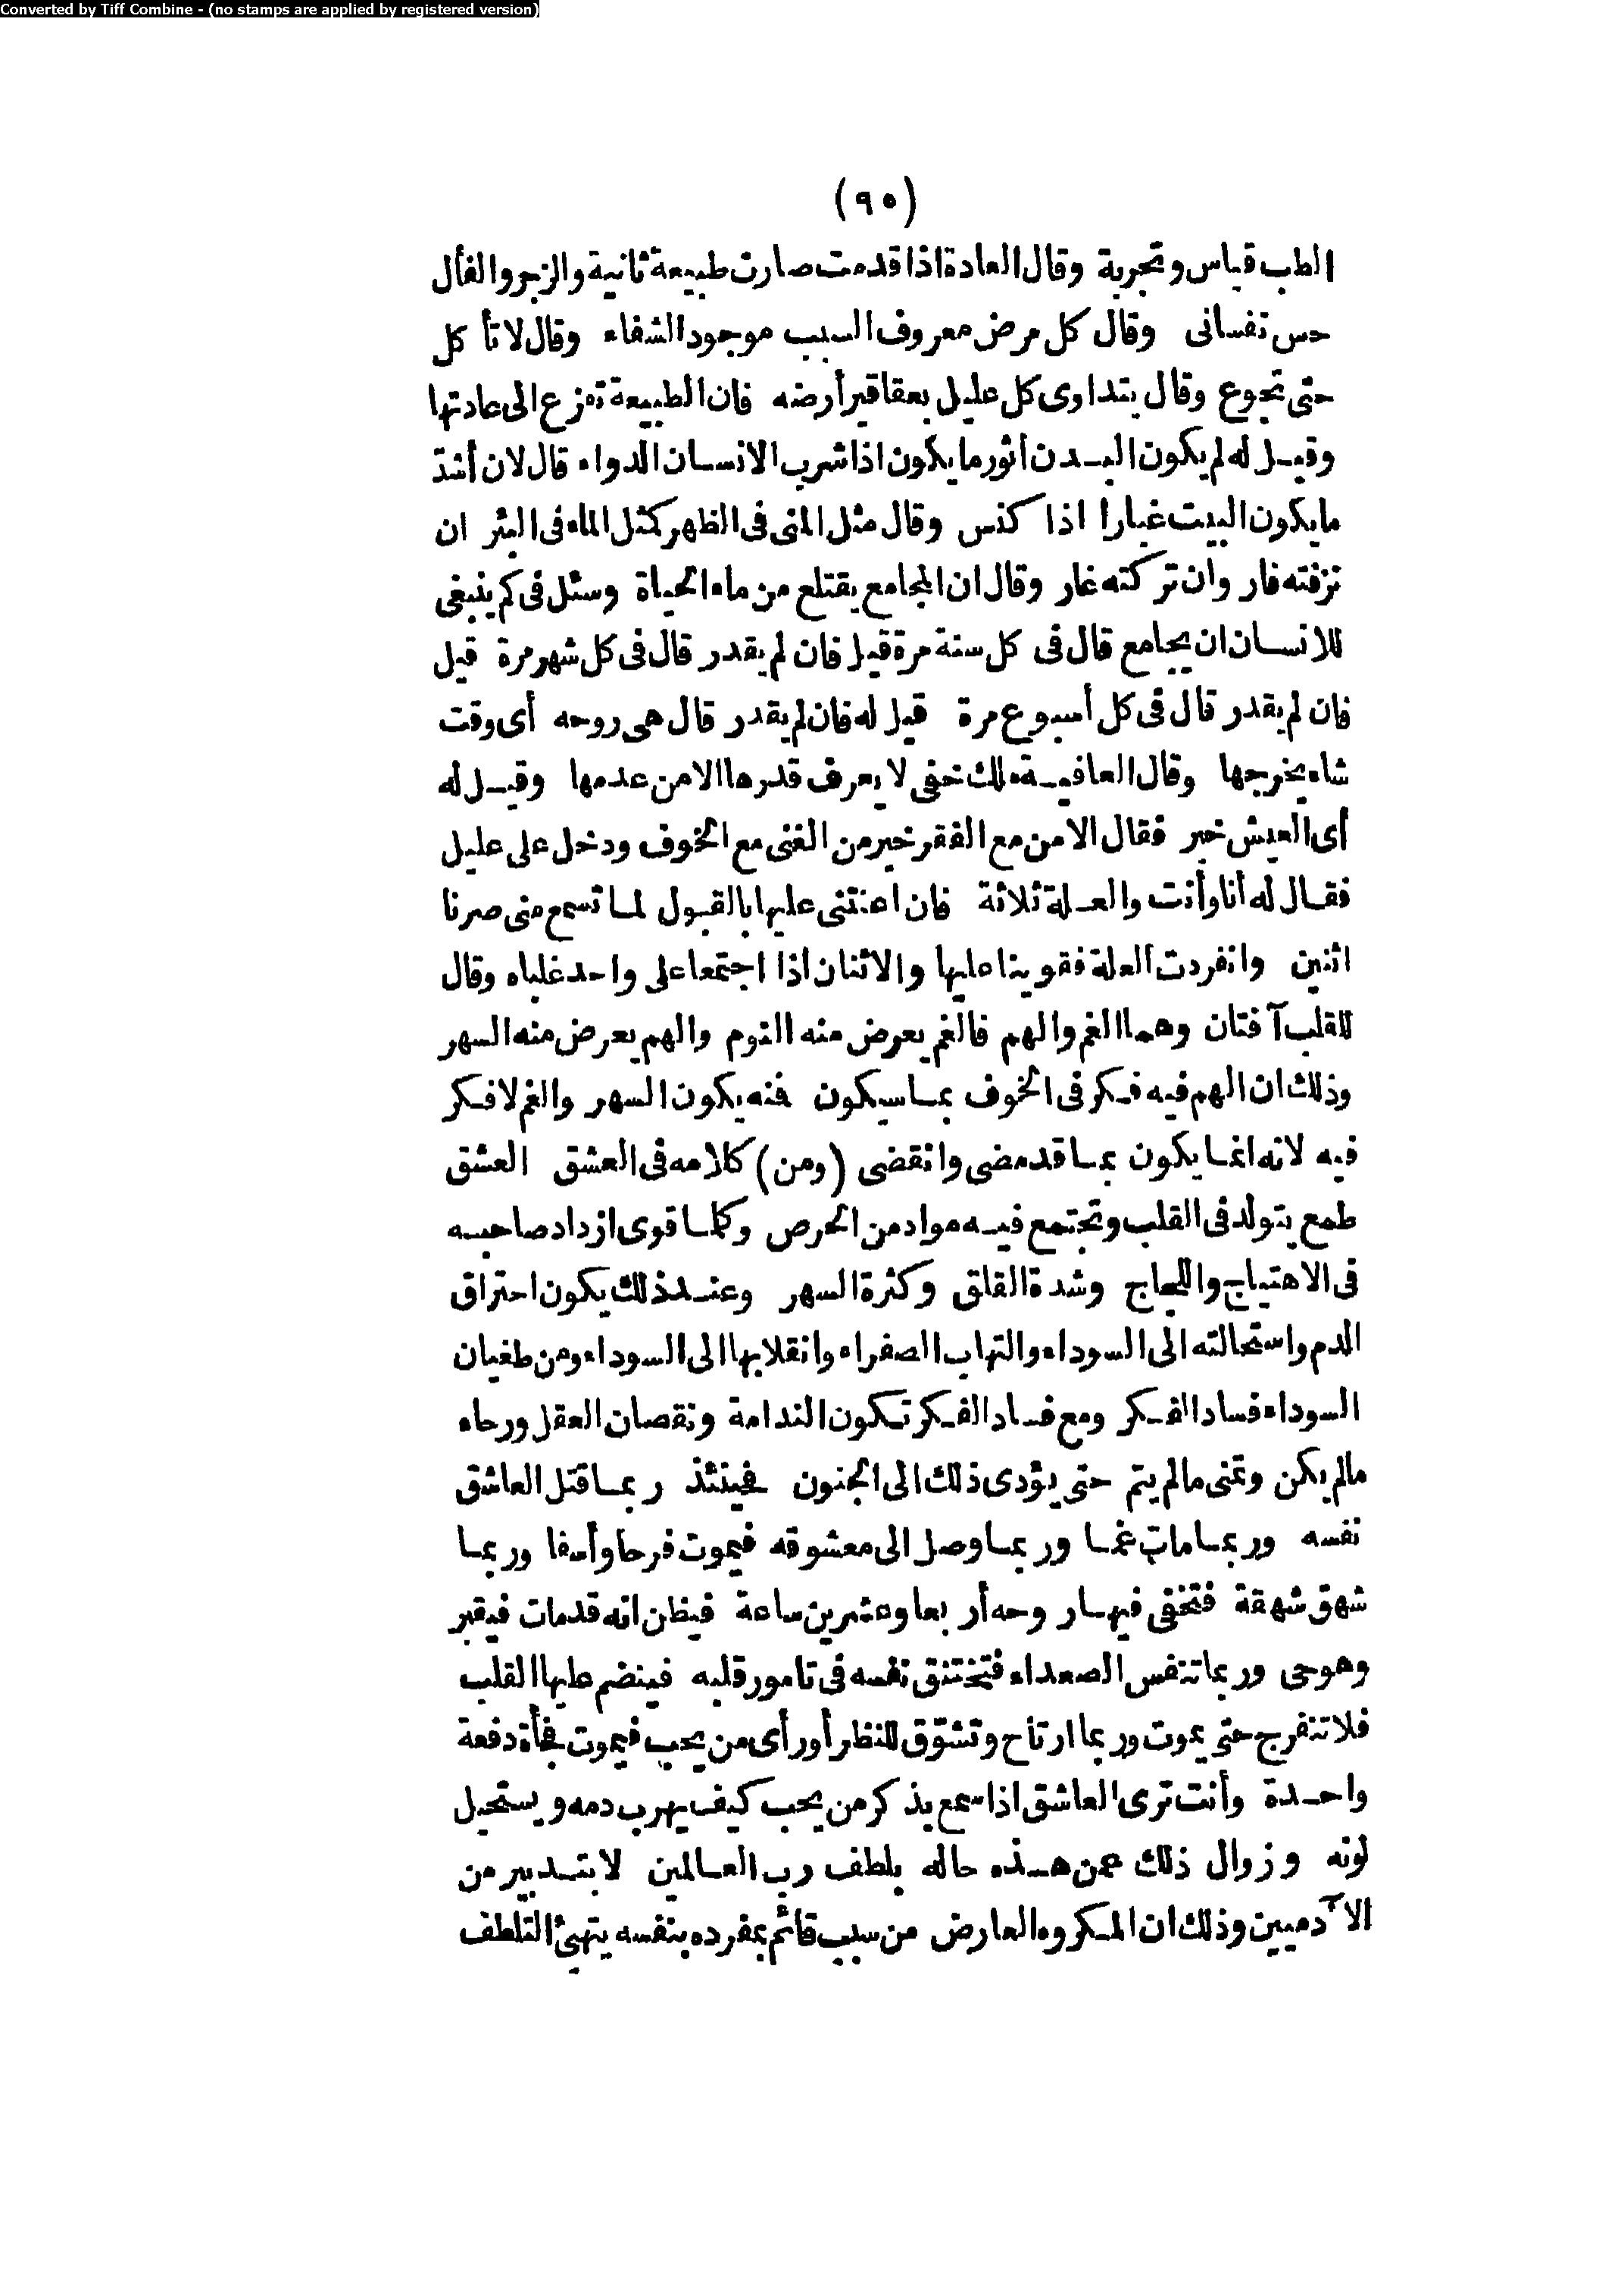 Converted by Tiff Combine - (no stamps are applied by registered version)
(٩٥)
الطب قياس وتجربة وقال العادة اذا قدمت صارت طبيعة ثانية والزجر والفأل
حس نفسانى وقال كل مرض معروف السبب موجود الشفاء وقال لا تأكل
حتى تجوع وقال يتداوى كل عليل بعقاقير أرضه فان الطبيعة تفزع الى عادتها
وقيل له لم يكون البدن أثور ما يكون اذا شرب الانسان الدواء قال لان أشدّ
ما يكون البيت غبارا اذا كنس وقال مثل المنى فى الظهر كمثل الماء فى البئر ان
نزفته فار وان تركته غار وقال ان المجامع يقتلع من ماء الحياة وسئل فى كم ينبغى
للانسان ان يجامع قال فى كل سنة مرة قيل فان لم يقدر قال فى كل شهر مرة قيل
فان لم يقدر قال فى كل أسبوع مرة قيل له فان لم يقدر قال هى روحه أى وقت
شاء يخرجها وقال العافية ملك خفى لا يعرف قدرها الا من عدمها وقيل له
أى العيش خير فقال الامن مع الفقر خير من الغنى مع الخوف ودخل على عليل
فقال له أنا وأنت والعلة ثلاثة فان اعنتنى عليها بالقبول لما تسمع منى صرنا
اثنين وانفردت العلة فقوينا عليها والاثنان اذا اجتمعا على واحد غلباه وقال
للقلب آفتان وهما الغم والهم فالغم يعرض منه النوم والهم يعرض منه السهر
وذلك ان الهم فيه فكر فى الخوف بما سيكون فمنه يكون السهر والغم لا فكر
فيه لانه انما يكون بما قد مضى وانقضى (ومن) كلامه فى العشق العشق
طمع يتولد فى القلب وتجتمع فيه مواد من الحرص وكلما قوى ازداد صاحبه
فى الاهتياج واللجاج وشدة القلق وكثرة السهر وعند ذلك يكون احتراق
الدم واستحالته الى السوداء والتهاب الصفراء وانقلابها الى السوداء ومن طغيان
السوداء فساد الفكر ومع فساد الفكر تكون الندامة ونقصان العقل ورجاء
ما لم يكن وتمنى ما لم يتم حتى يؤدى ذلك الى الجنون فحينئذ ربما قتل العاشق
نفسه وربما مات غما وربما وصل الى معشوقه فيموت فرحا وأسفا وربما
شهق شهقة فتختفى فيها روحه أربعا وعشرين ساعة فيظن انه قد مات فيقبر
وهو حى وربما تنفس الصعداء فتختنق نفسه فى تامور قلبه فينضم عليها القلب
فلا تنفرج حتى يموت وربما ارتاح وتشوّق للنظر أو رأى من يحب فيموت فجأة دفعة
واحدة وأنت ترى العاشق اذا سمع بذكر من يحب كيف يهرب دمه ويستحيل
لونه وزوال ذلك عمن هذه حاله بلطف رب العالمين لا بتدبير من
الآدميين وذلك ان المكروه العارض من سبب قائم بمفرده بنفسه يتهيئ التلطف